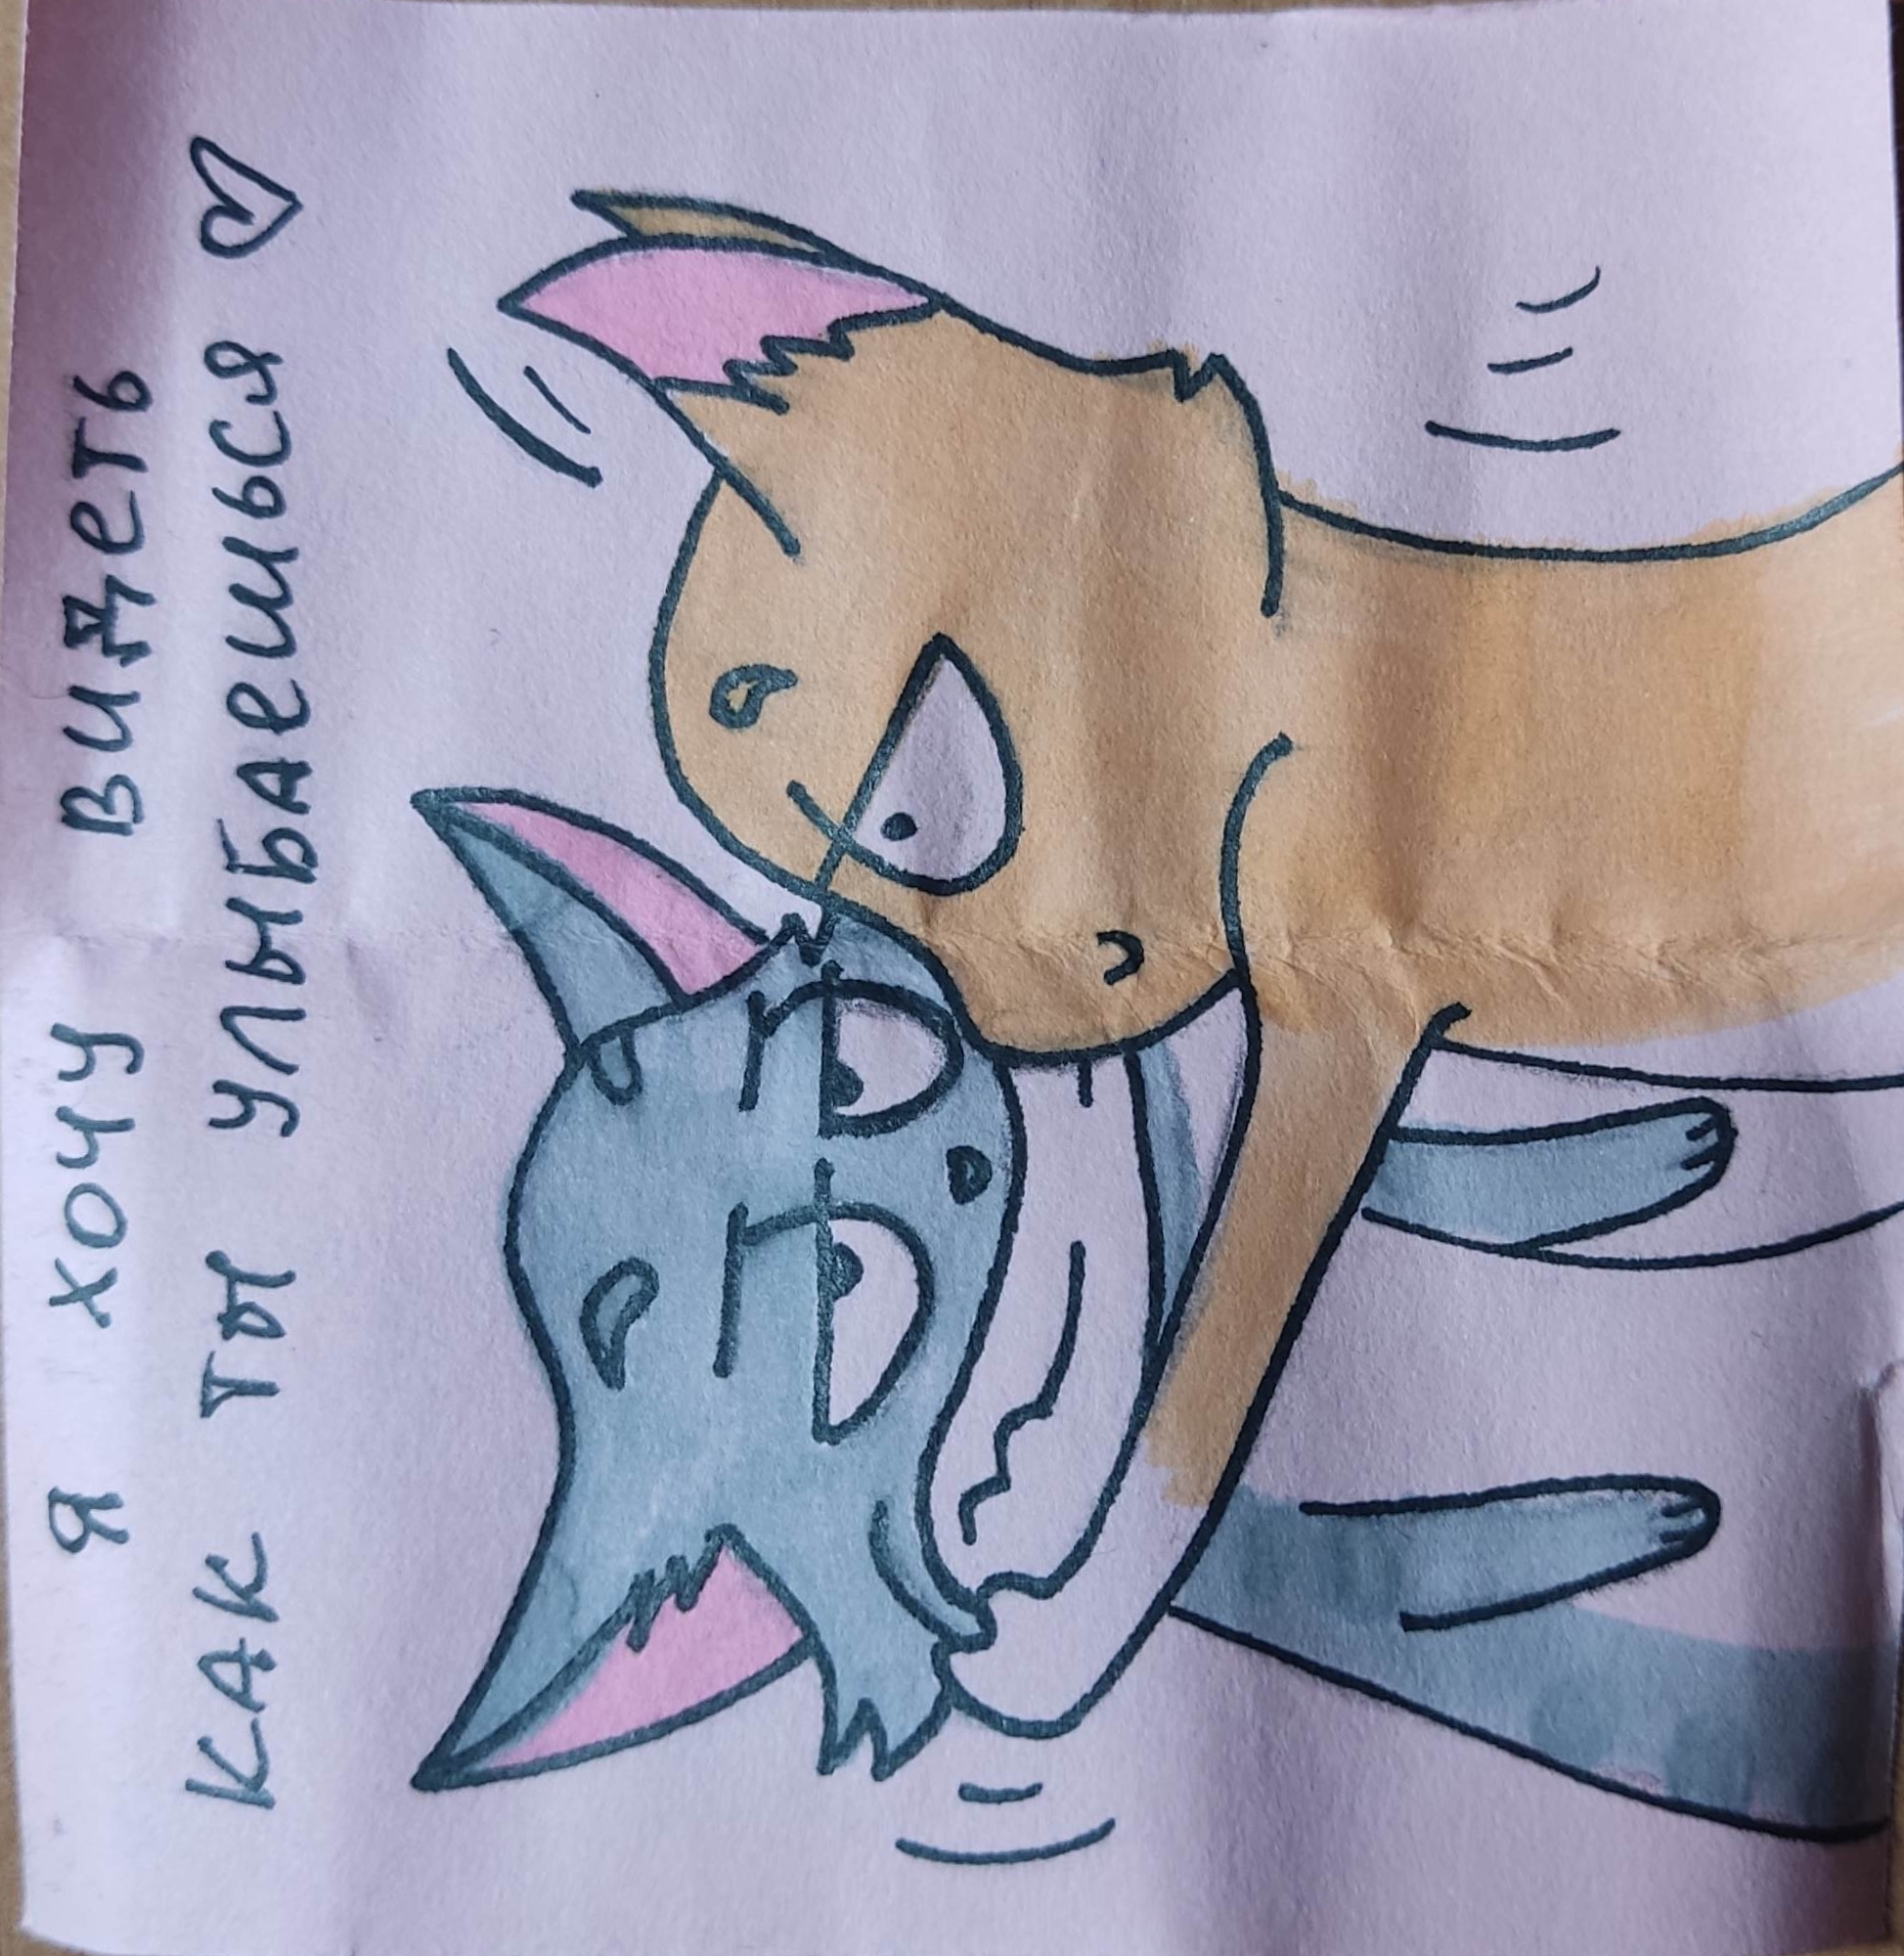 Я ХОЧУ ВИДЕТЬ
КАК ТЫ УЛЫБАЕШЬСЯ ♡